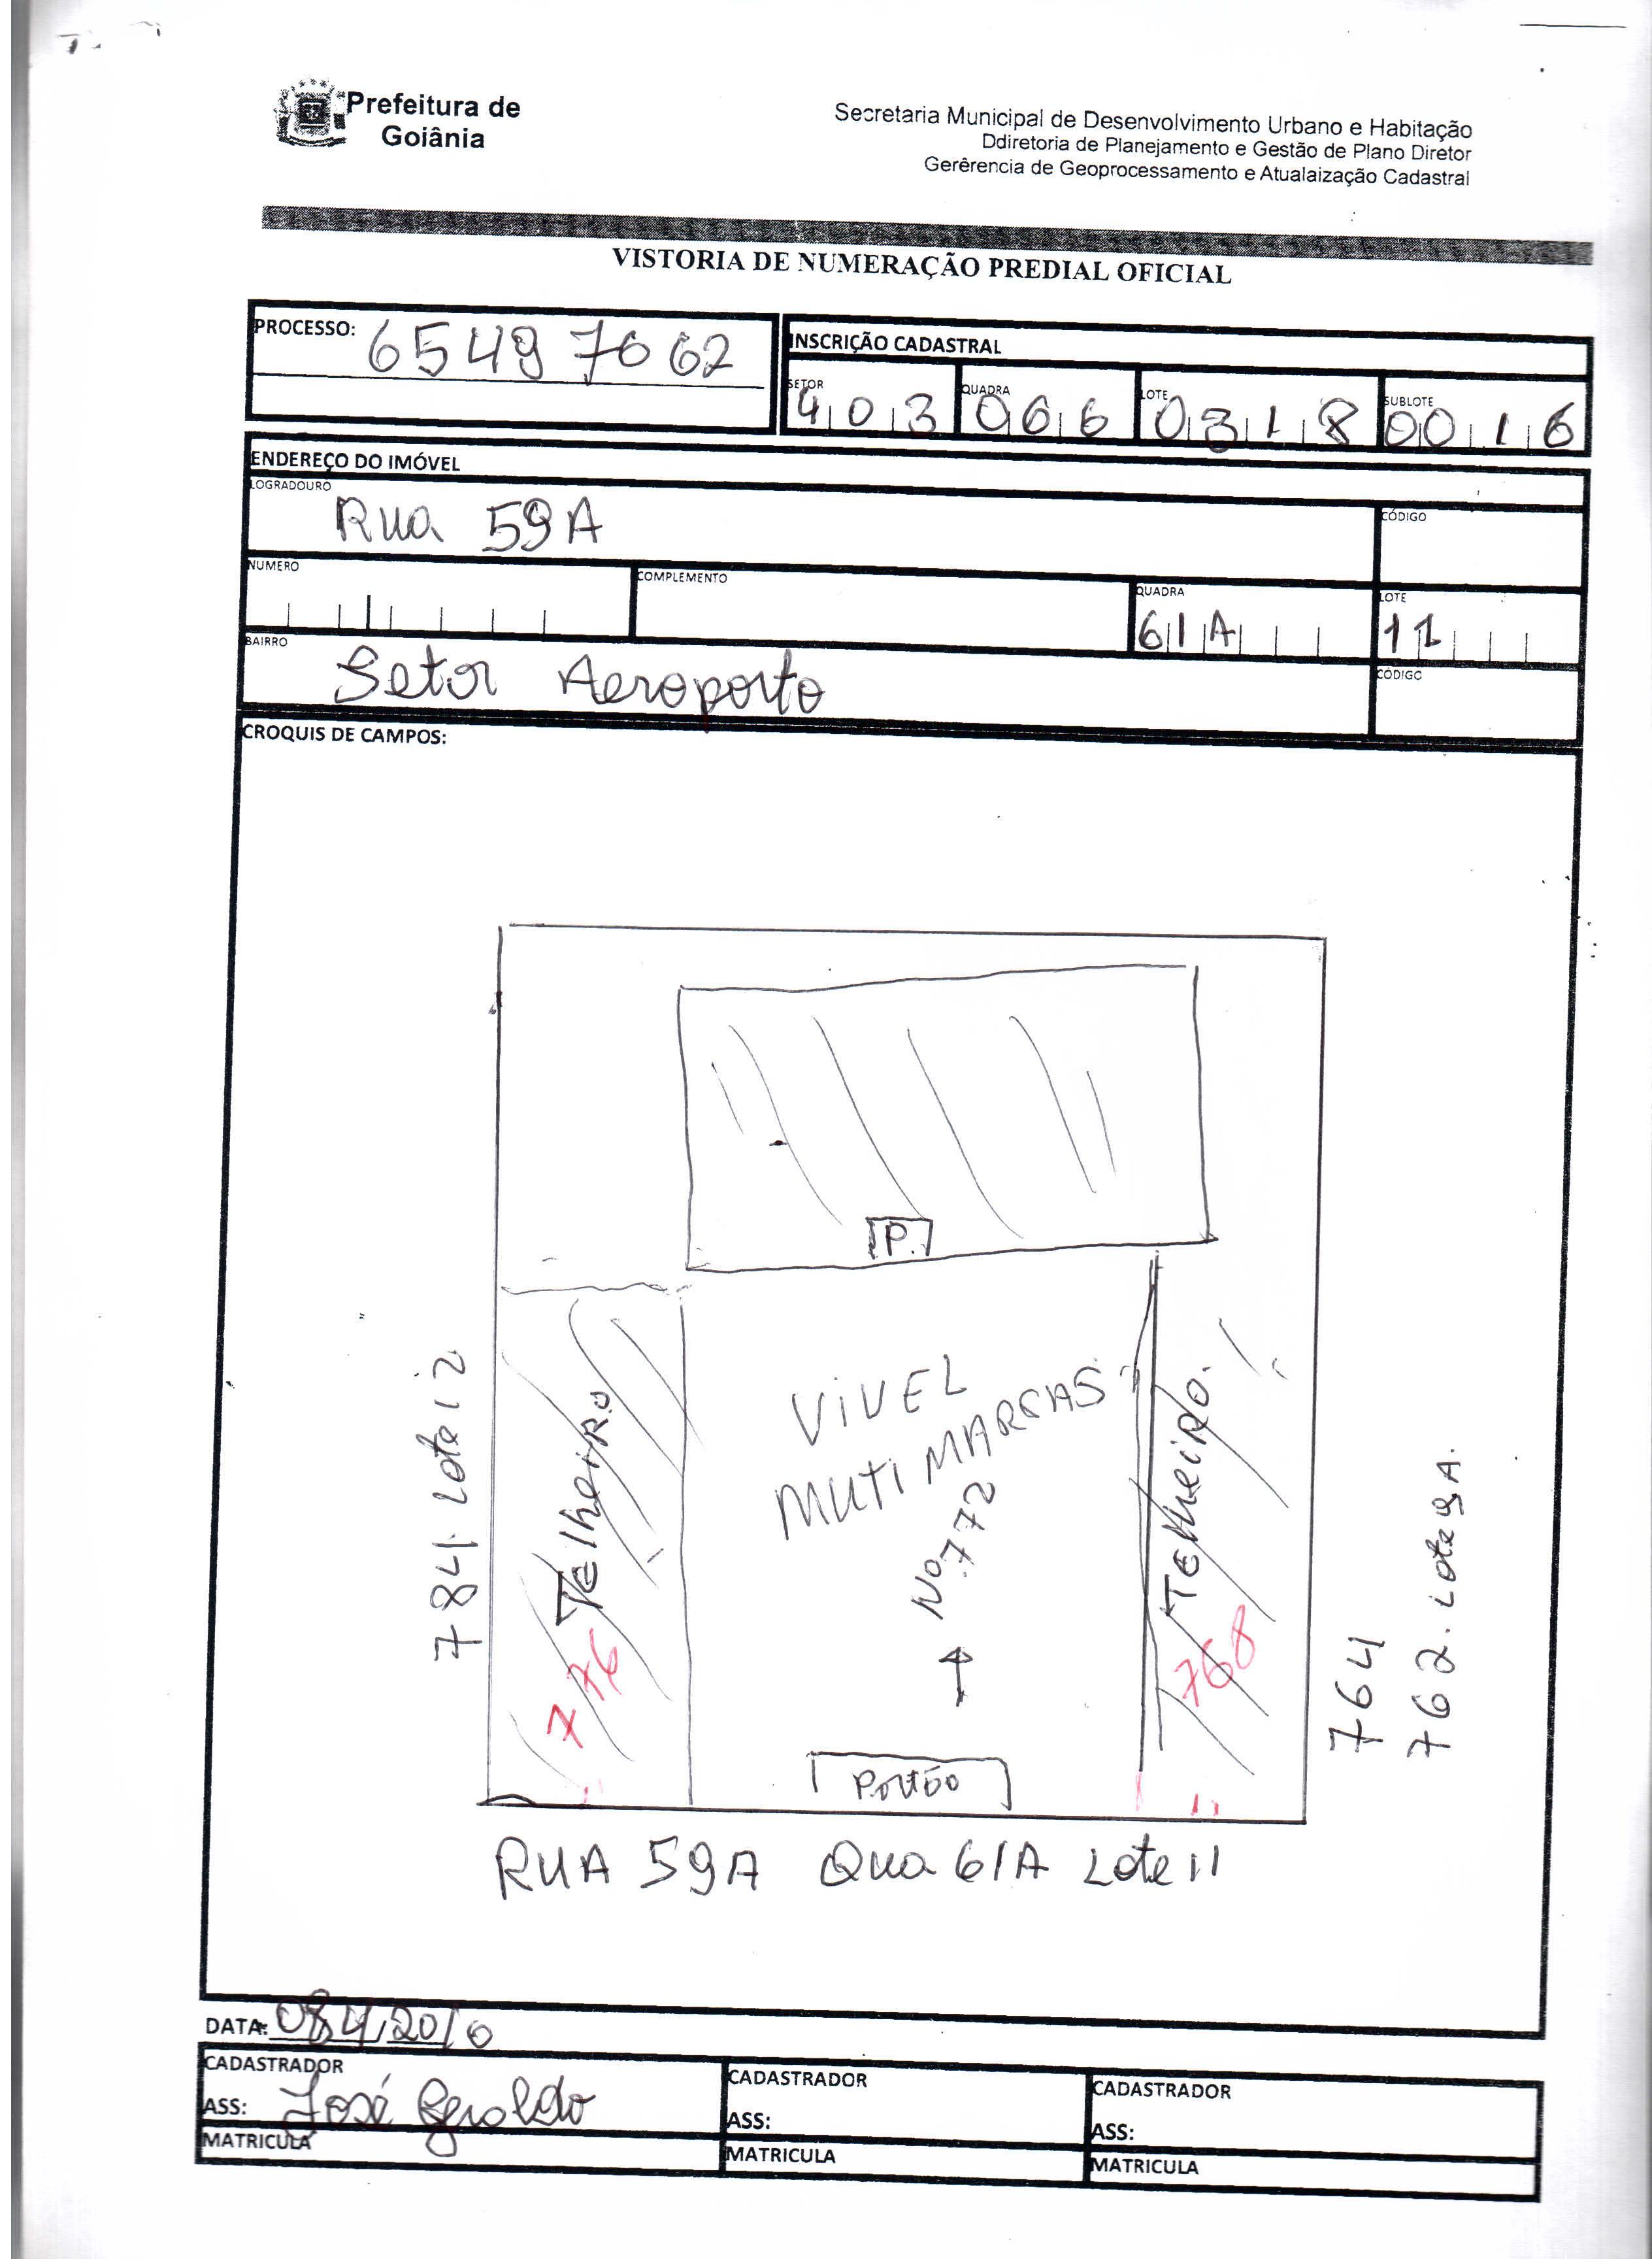 Prefeitura de
Goiânia
Secretaria Municipal de Desenvolvimento Urbano e Habitação
Ddiretoria de Planejamento e Gestão de Plano Diretor
Gerêrencia de Geoprocessamento e Atualaização Cadastral
VISTORIA DE NUMERAÇÃO PREDIAL OFICIAL
PROCESSO: 65497662
INSCRIÇÃO CADASTRAL
SETOR 403 QUADRA 066 LOTE 0318 SUBLOTE 0016
ENDEREÇO DO IMÓVEL
LOGRADOURO Rua 59A CÓDIGO
NUMERO COMPLEMENTO QUADRA 61A LOTE 11
BAIRRO Setor Aeroporto CÓDIGO
CROQUIS DE CAMPOS:
P.
784 Lote 12
Telheiro
776
VIVEL
MUTI MARCAS
No 772
Telheiro.
768
764
762. Lote 9A.
Portão
RUA 59A Qua 61A Lote 11
DATA: 08 4 2016
CADASTRADOR CADASTRADOR CADASTRADOR
ASS: José Geraldo ASS: ASS:
MATRICULA MATRICULA MATRICULA